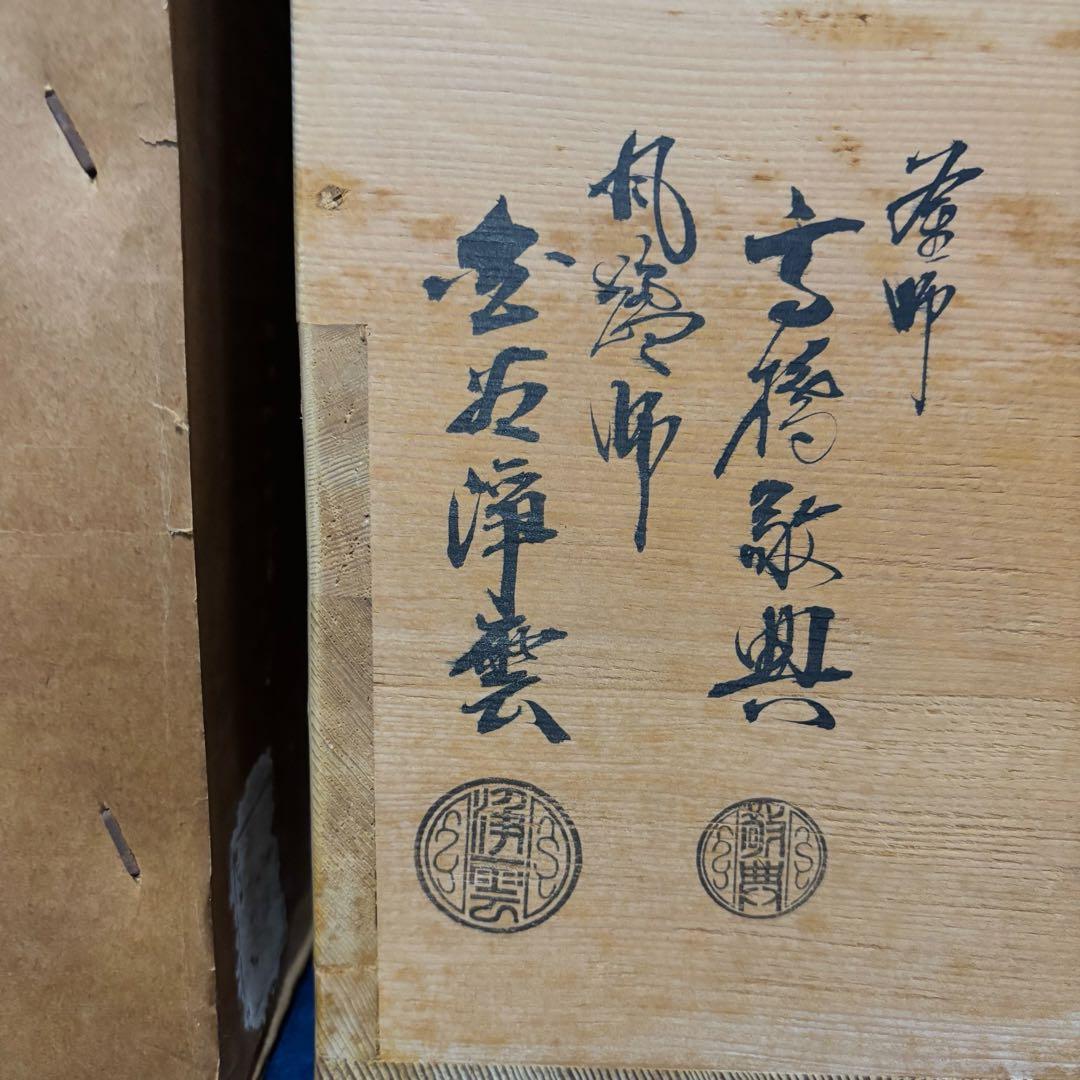 釜師
高橋敬典
風炉師
金谷浄雲
浄雲
敬典